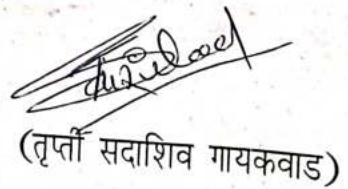 (तृप्ती सदाशिव गायकवाड)